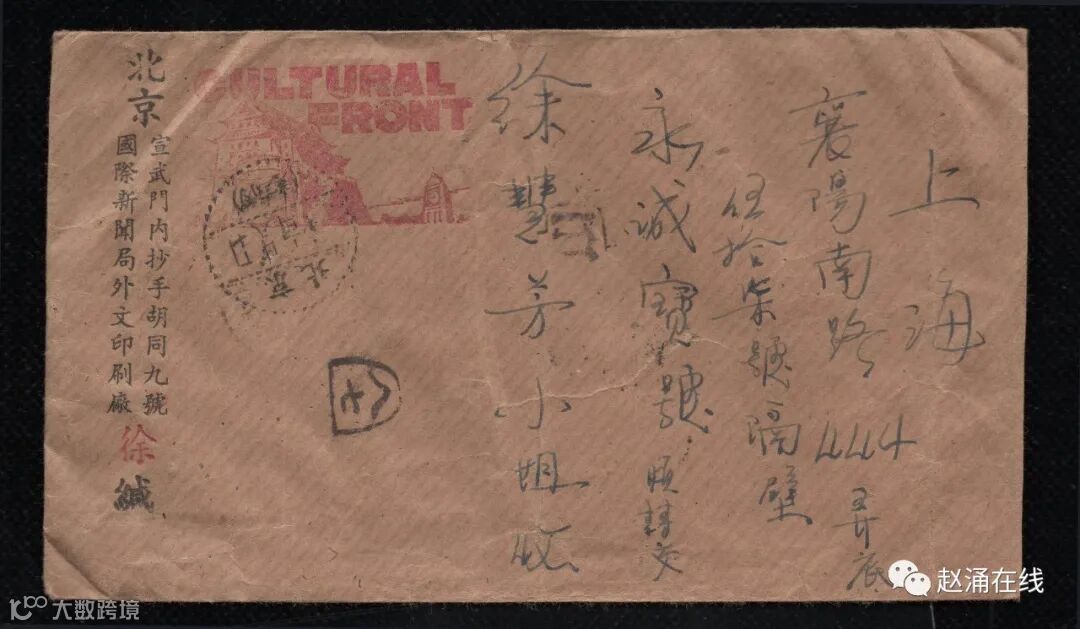 上海
襄陽南路444弄底
伍拾柒號隔壁
永誠寶號 煩請交
徐慧芳小姐收
CULTURAL
FRONT
北京
北京
宣武門內抄手胡同九號
國際新聞局外文印刷廠
徐緘
大数跨境
赵涌在线